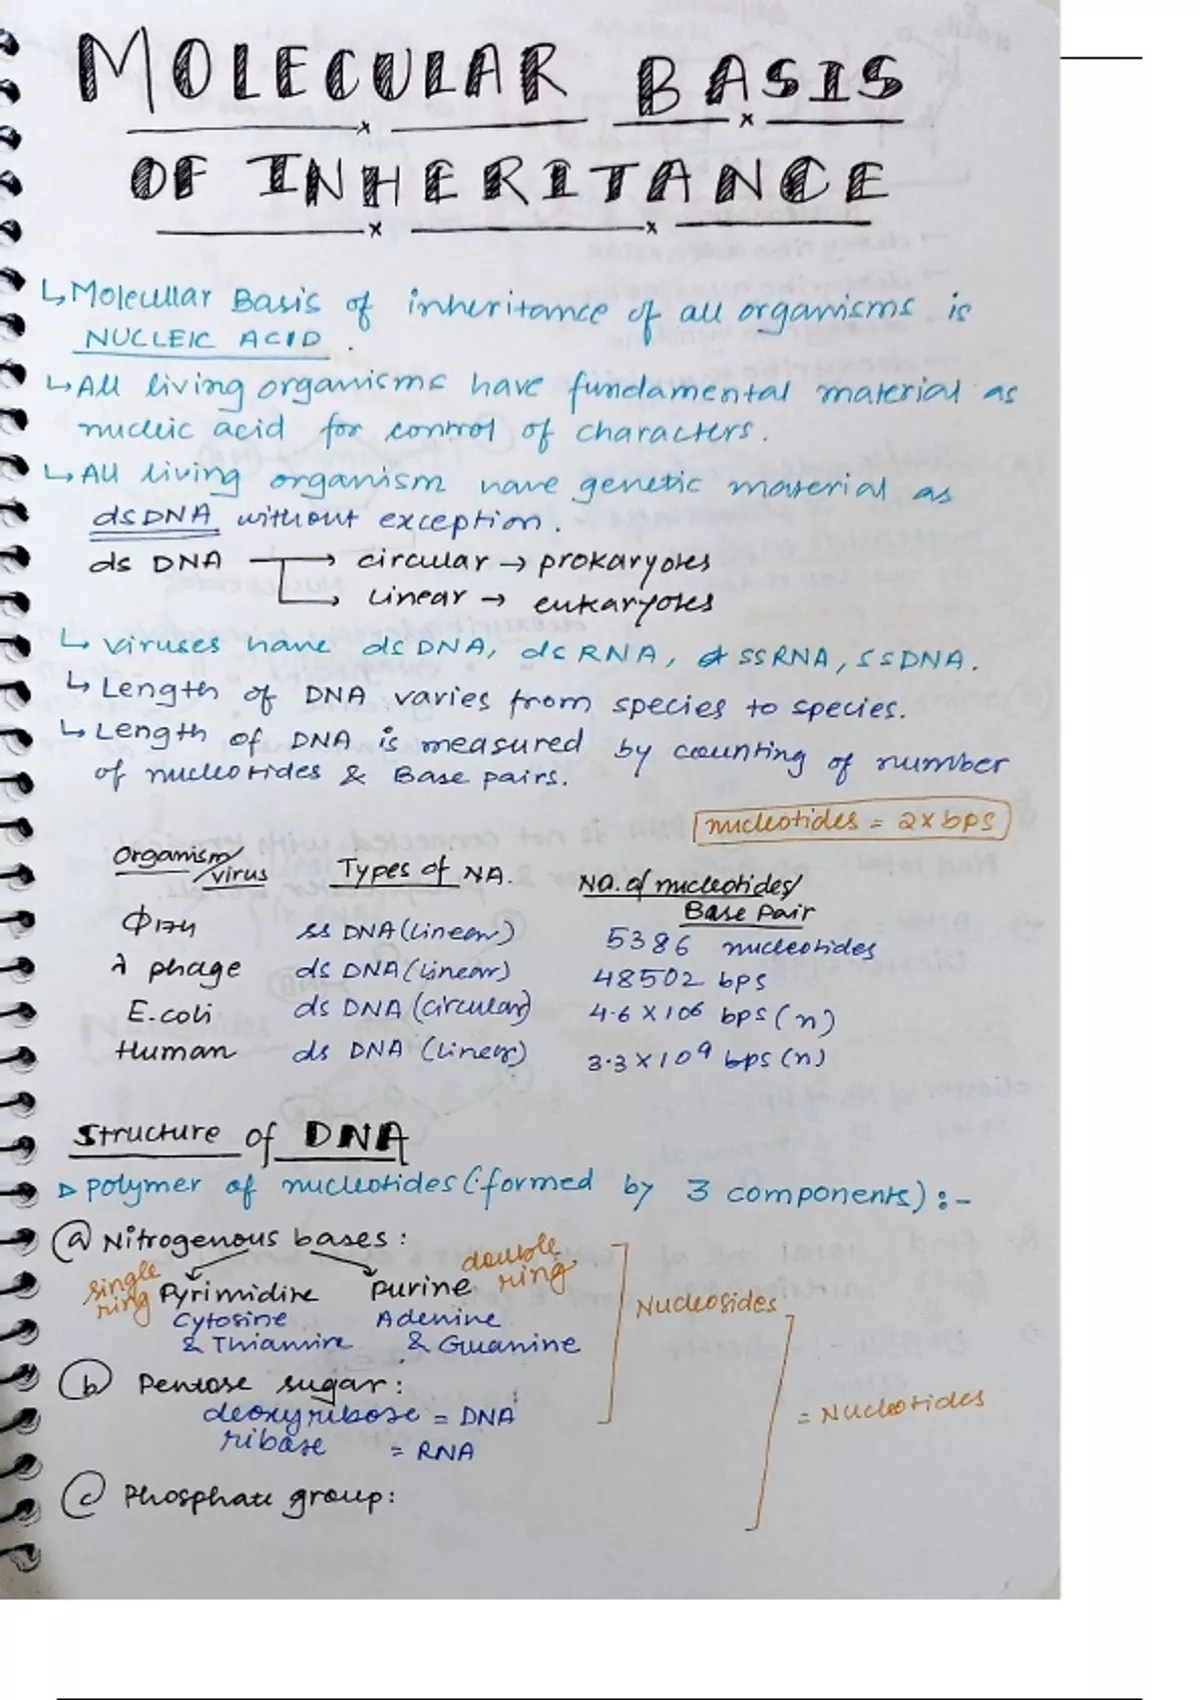 MOLECULAR BASIS
OF INHERITANCE
↳ Molecular Basis of inheritance of all organisms is
NUCLEIC ACID.
↳ All living organisms have fundamental material as
nucleic acid for control of characters.
↳ All living organism have genetic material as
dsDNA without exception.
ds DNA → circular → prokaryotes
→ Linear → eukaryotes
↳ viruses have dsDNA, dsRNA, ssRNA, ssDNA.
↳ Length of DNA varies from species to species.
↳ Length of DNA is measured by counting of number
of nucleotides & Base pairs.
nucleotides = 2x bps
Organism/virus Types of NA. No. of nucleotides/Base Pair
Φ174 ss DNA (Linear) 5386 nucleotides
λ phage ds DNA (Linear) 48502 bps
E.coli ds DNA (Circular) 4.6 X 10⁶ bps (n)
Human ds DNA (Linear) 3.3 X 10⁹ bps (n)
Structure of DNA
▷ Polymer of nucleotides (:formed by 3 components) :-
(a) Nitrogenous bases :
single ring Pyrimidine Purine double ring
Cytosine Adenine
& Thiamine & Guanine
Nucleosides
(b) Pentose sugar :
deoxyribose = DNA
ribose = RNA
= Nucleotides
(c) Phosphate group :